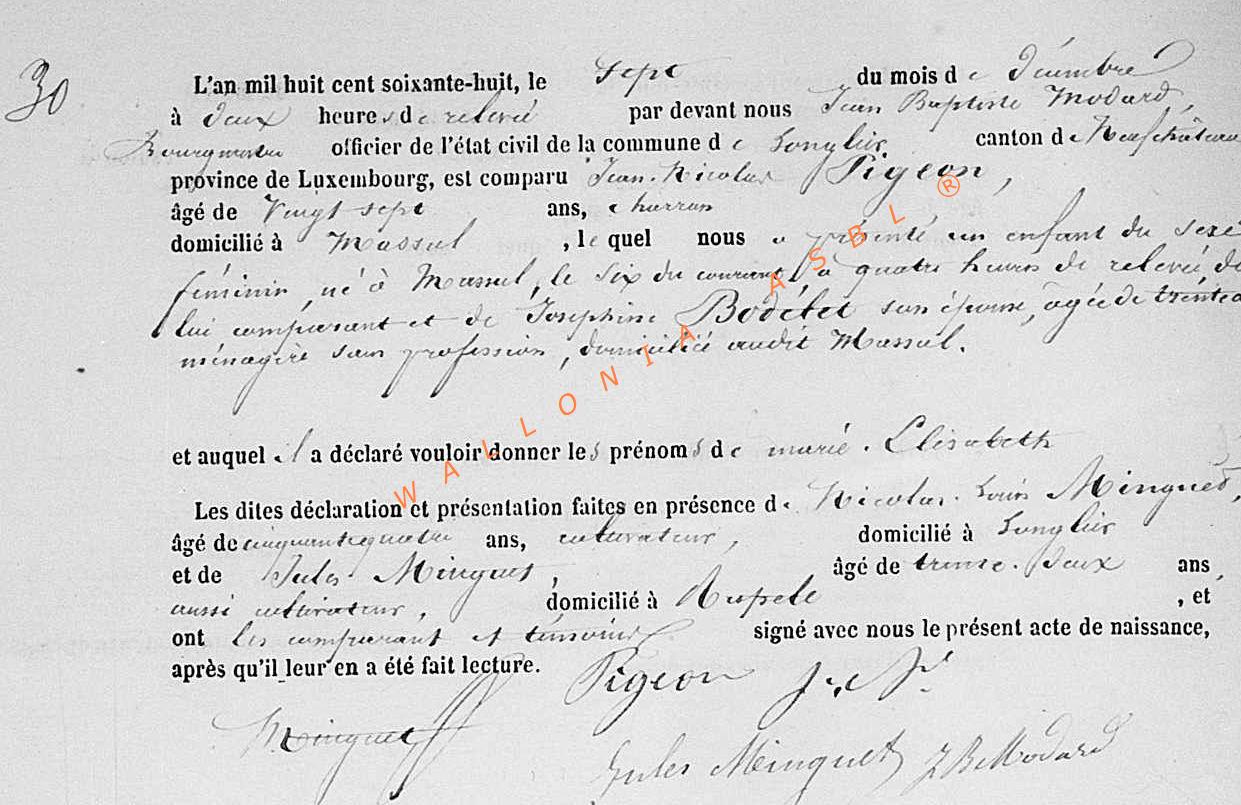 30
L'an mil huit cent soixante-huit, le sept du mois de Décembre
à Deux heures de relevée par devant nous Jean Baptiste Modard,
Bourgmestre officier de l'état civil de la commune de Longlier canton de Neufchâteau
province de Luxembourg, est comparu Jean-Nicolas Pigeon,
âgé de Vingt sept ans, charron
domicilié à Massul, lequel nous a présenté un enfant du sexe
féminin, né à Massul, le six du courant, à quatre heures de relevée, de
lui comparant et de Josephine Bodelet son épouse, agée de trente
ménagère sans profession, domicilié audit Massul.
et auquel il a déclaré vouloir donner les prénoms de marie. Elisabeth
Les dites déclaration et présentation faites en présence de Nicolas. Louis Minguet,
âgé de cinquante quatre ans, cultivateur, domicilié à Longlier
et de Jules Minguet, âgé de trente. Deux ans,
aussi cultivateur, domicilié à, et
ont les comparant et témoins signé avec nous le présent acte de naissance,
après qu'il leur en a été fait lecture.
Pigeon J. N.
Minguet
Jules Minguet J B Modard
WALLONIA ASBL ®